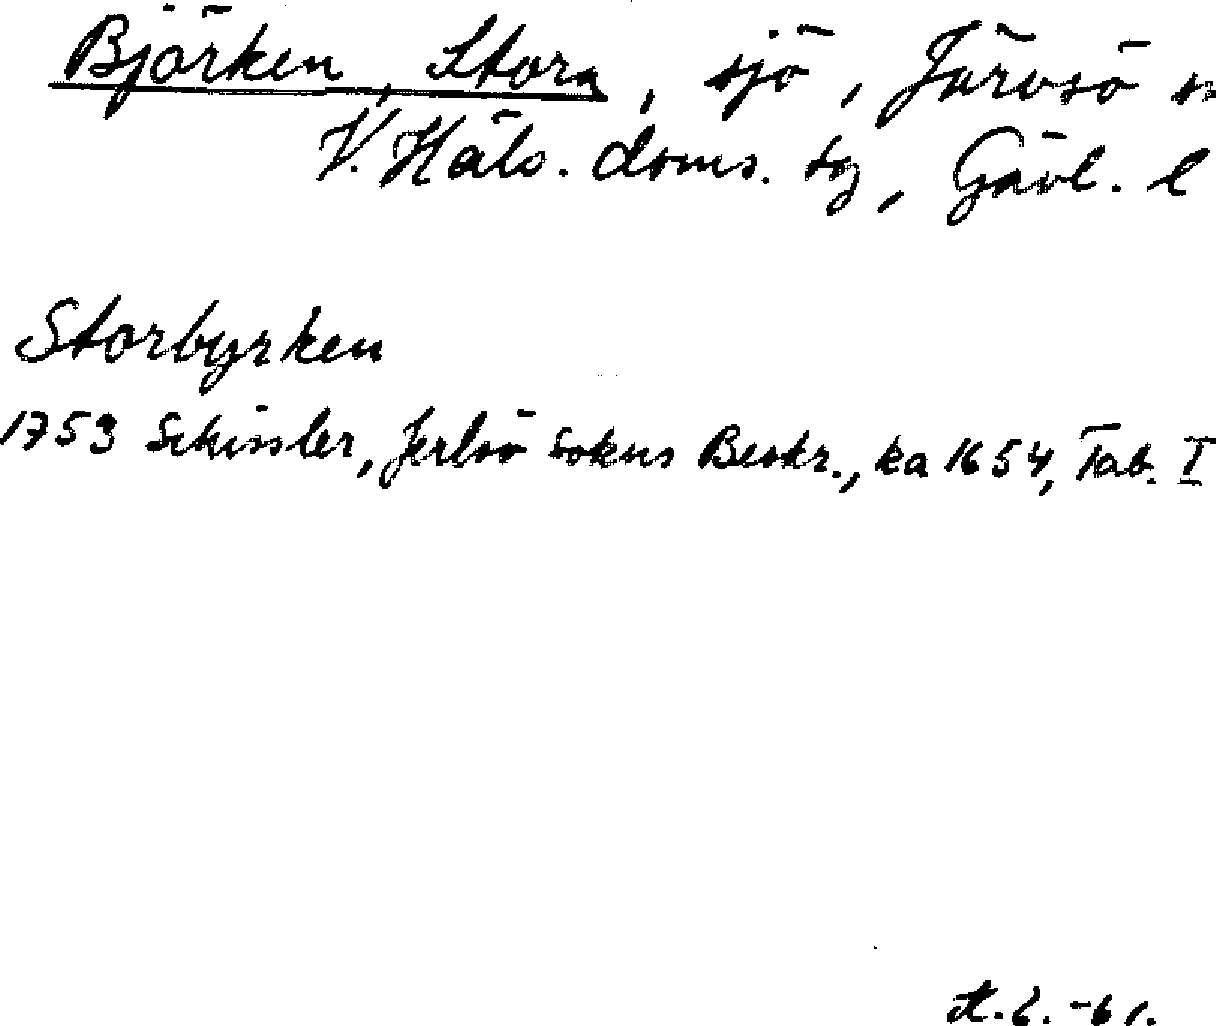 Björken, Stora, sjö, Järvsö s
V. Häls. doms. sg, Gävl. l
Storbyrken
1753 Schissler, Jerlsö Sokns Beskr., ka 1654, Tab. I
-61.